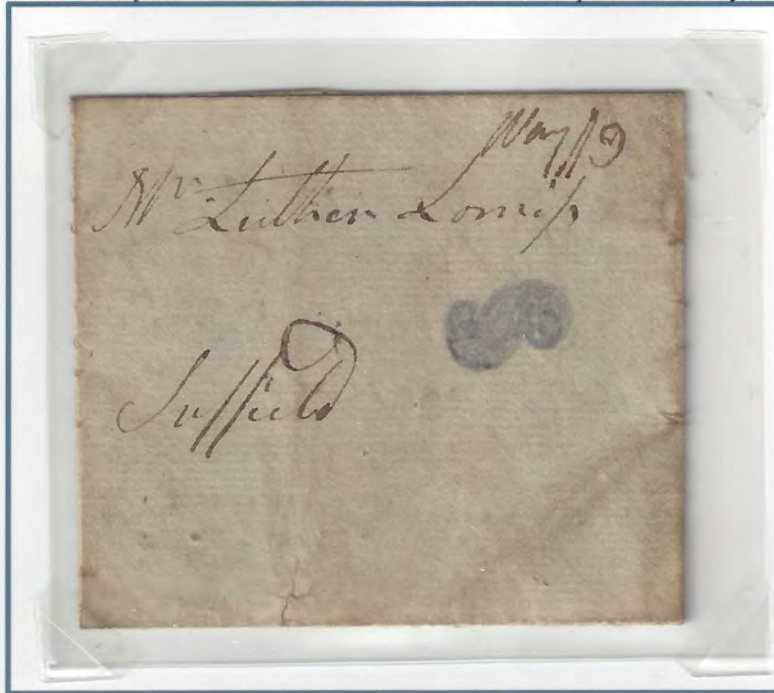 Way 9
Mr Luther Lomis
Suffield